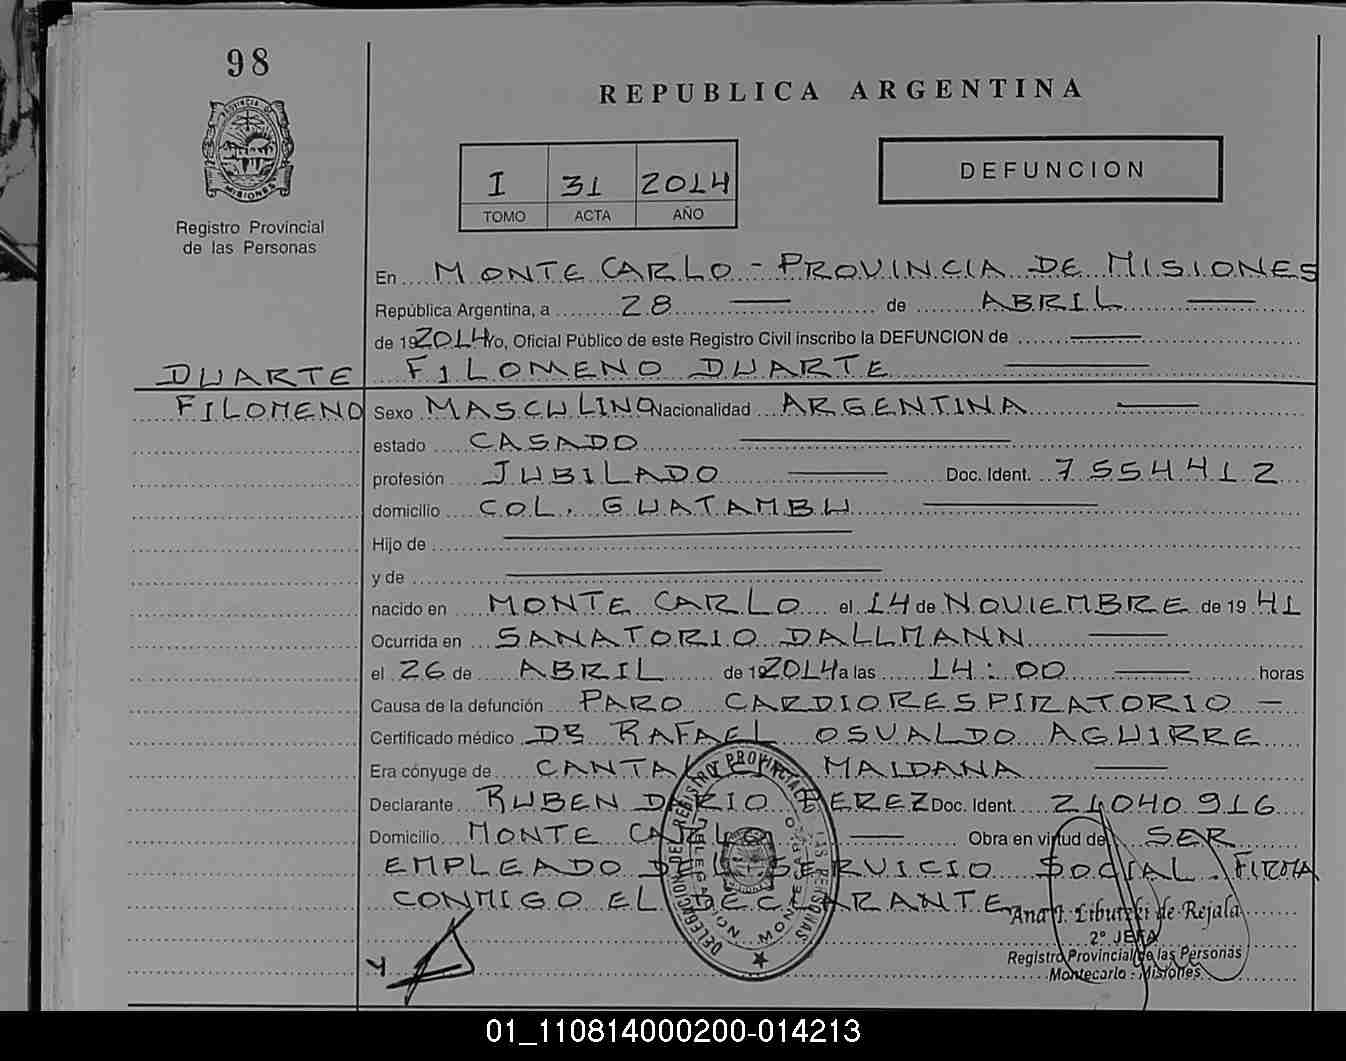 98
PROVINCIA DE
MISIONES
Registro Provincial
de las Personas
REPUBLICA ARGENTINA
I 31 2014
TOMO ACTA AÑO
DEFUNCION
En MONTE CARLO - PROVINCIA DE MISIONES
República Argentina, a 28 de ABRIL
de 192014 Yo, Oficial Público de este Registro Civil inscribo la DEFUNCION de
DUARTE FILOMENO DUARTE
FILOMENO Sexo MASCULINO Nacionalidad ARGENTINA
estado CASADO
profesión JUBILADO Doc. Ident. 7554412
domicilio COL. GUATAMBU
Hijo de
y de
nacido en MONTE CARLO el 14 de NOVIEMBRE de 19 41
Ocurrida en SANATORIO DALLMANN
el 26 de ABRIL de 192014 a las 14:00 horas
Causa de la defunción PARO CARDIORESPIRATORIO -
Certificado médico DR RAFAEL OSVALDO AGUIRRE
Era cónyuge de MAIDANA
Declarante RUBEN DARIO PEREZ Doc. Ident. 21040916
Domicilio MONTE CARLO Obra en virtud de SER
EMPLEADO DEL SERVICIO SOCIAL. FIRMA
CONMIGO EL DECLARANTE
DELEGACION DEL REGISTRO PROVINCIAL DE LAS PERSONAS
DELEGACION MONTECARLO
Ana J. de Rejala
2º JEFA
Registro Provincial de las Personas
Montecarlo - Misiones
01_110814000200-014213